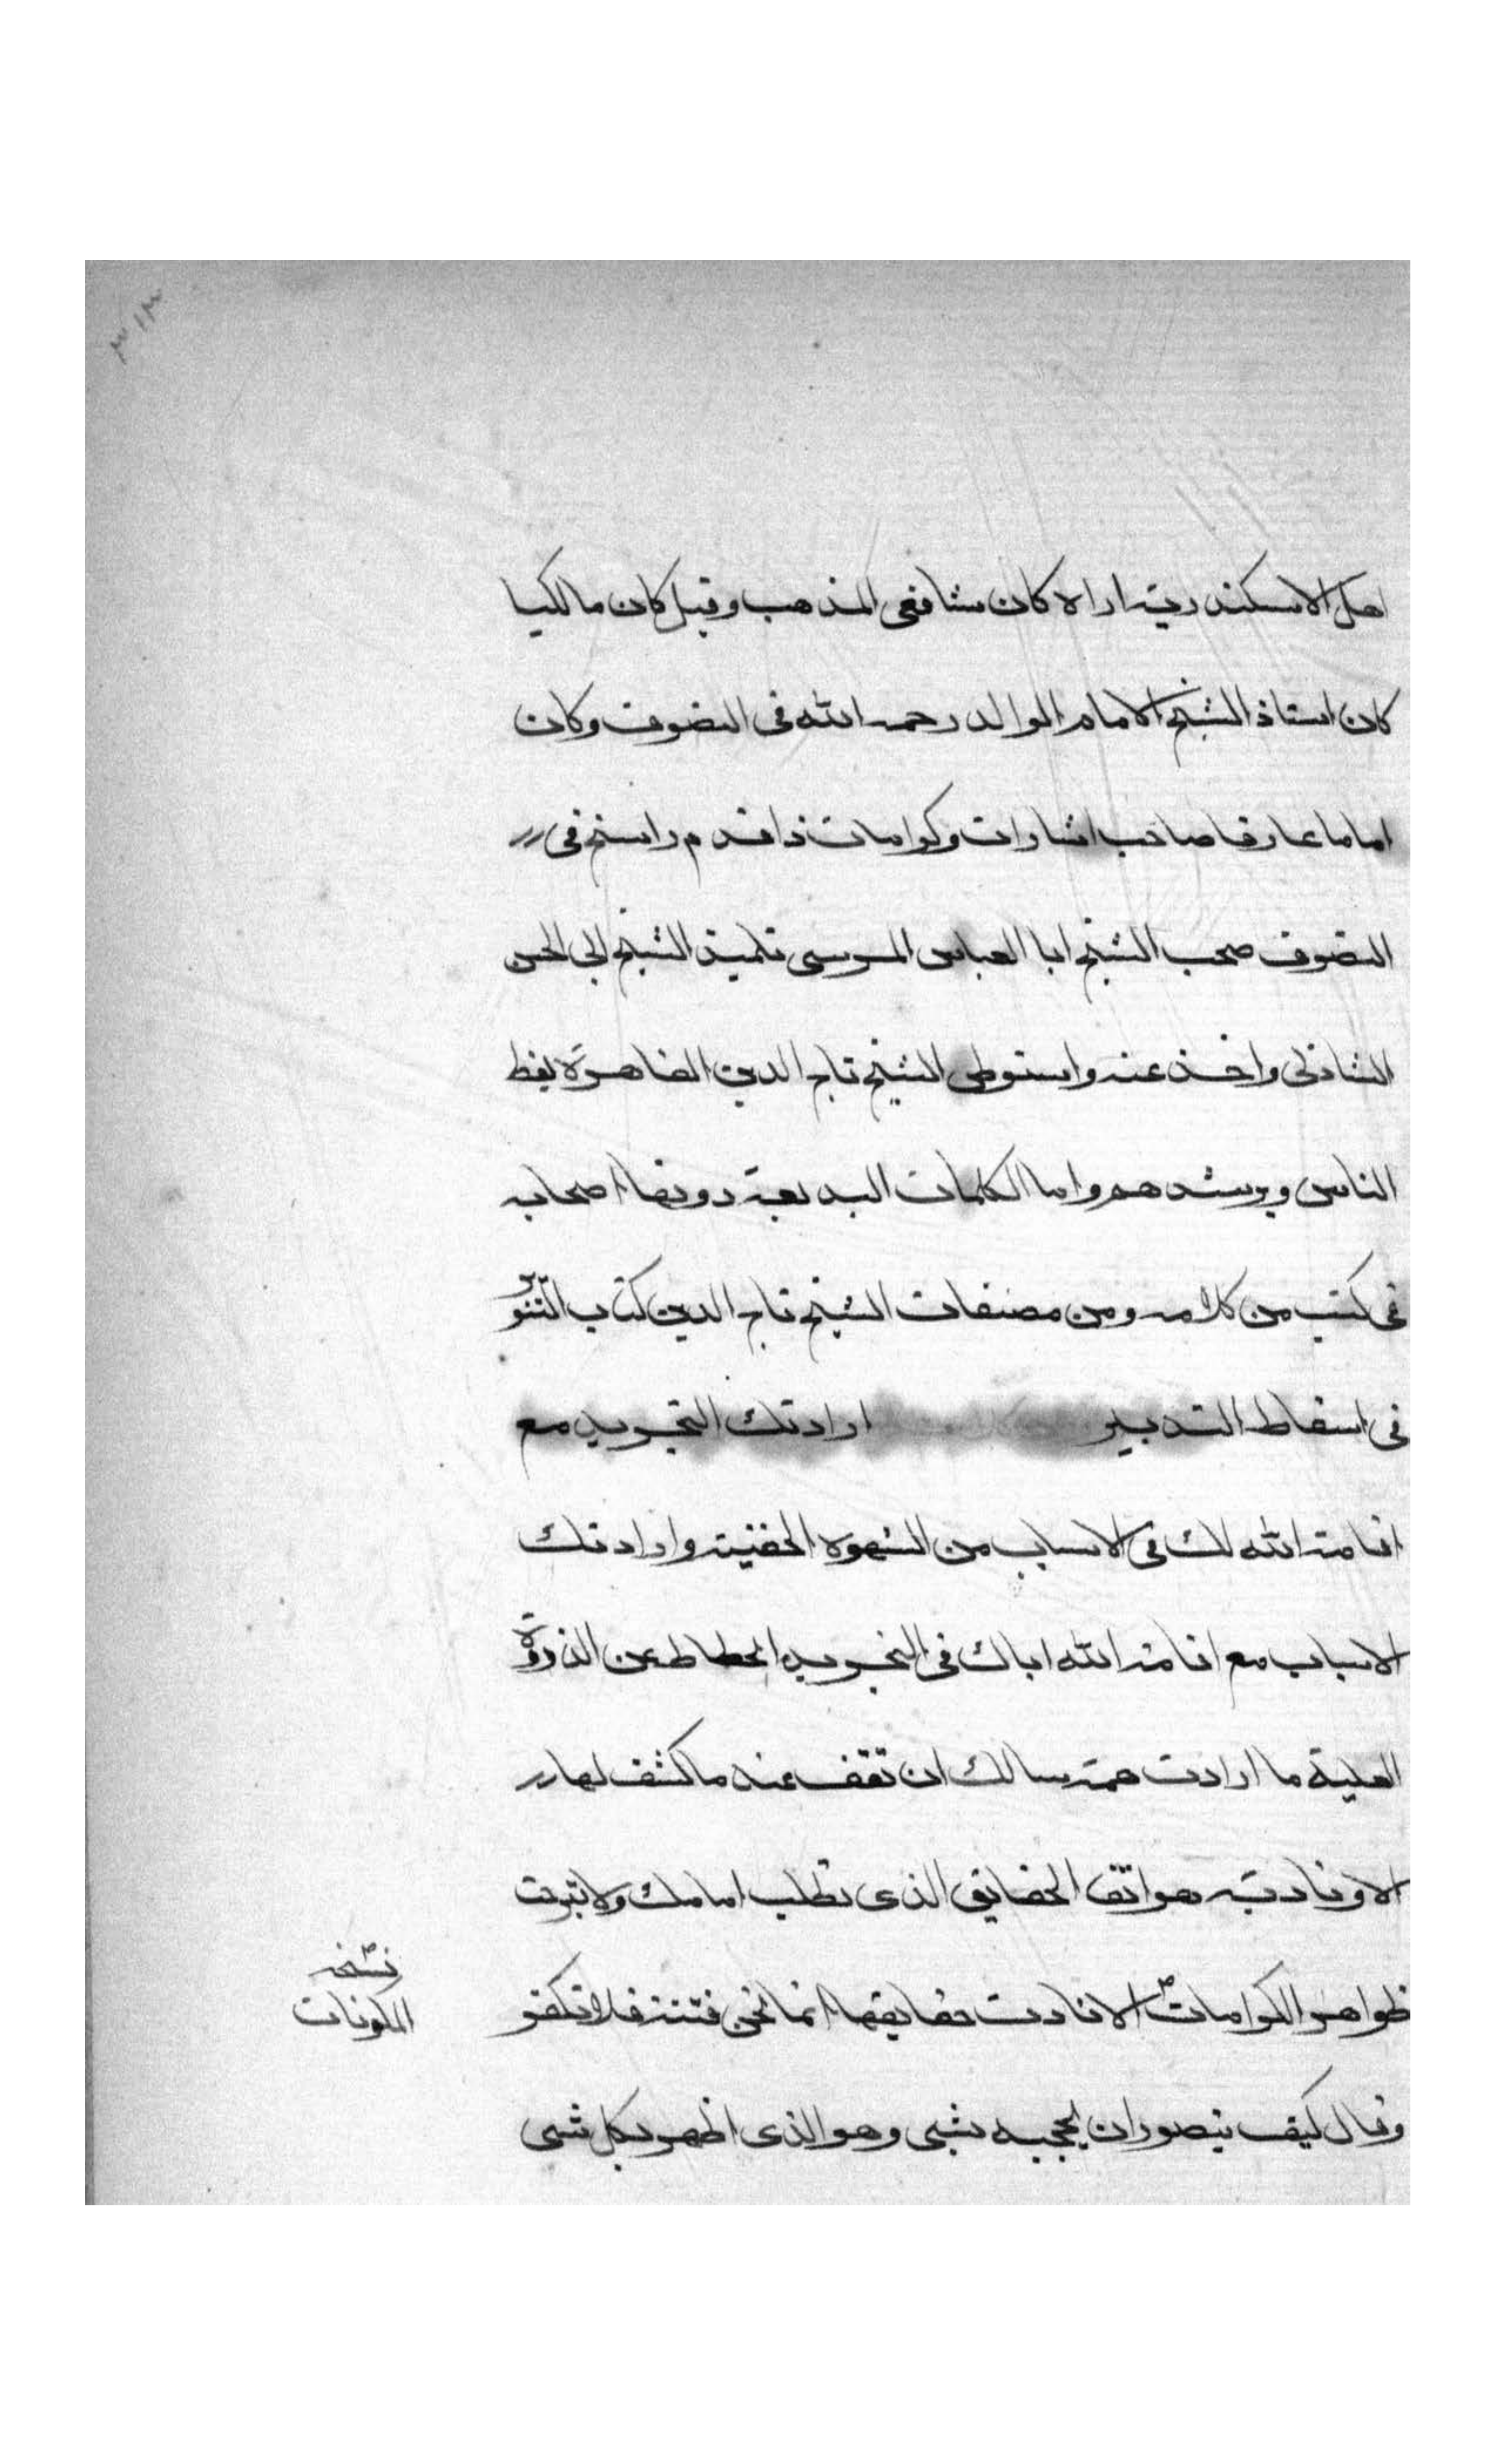 ٣١٣
اهل الاسكندرية اراه كان شافعى المذهب وقيل كان مالكيا
كان استاذ الشيخ الامام الوالد رحمه الله فى التصوف وكان
اماما عارفا صاحب اشارات وكرامات ذا قدم راسخ فى
التصوف صحب الشيخ ابا العباس المرسى تلميذ الشيخ ابى الحسن
الشاذلى واخذ عنه واستوطن الشيخ تاج الدين القاهرة يعظ
الناس ويرشدهم واما الكلمات البديعة دونها اصحابه
فى كتب من كلامه ومن مصنفات الشيخ تاج الدين كتاب التنوير
فى اسقاط التدبير ارادتك التجريد مع
اقامة الله لك فى الاسباب من الشهوة الخفية وارادتك
الاسباب مع اقامة الله اياك فى التجريد انحطاط عن الذروة
العلية ما ارادت همة سالك ان تقف عند ما كشف لها
الا ونادته هواتف الحقايق الذى تطلب امامك ولا تبرجت
ظواهر الكرامات الا نادت حقايقها انما نحن فتنة فلا تكفر
نسخه
المكونات
وقال كيف يتصور ان يحجبه شىء وهو الذى اظهر بكل شىء